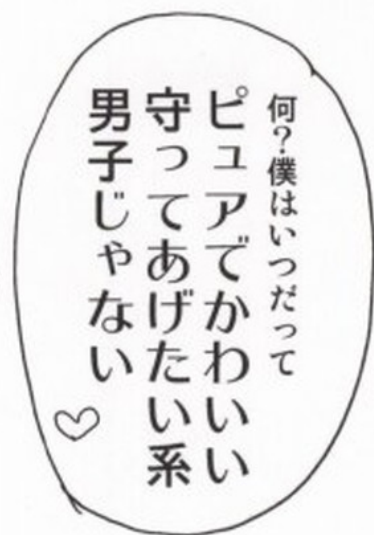 何?僕はいつだって
ピュアでかわいい
守ってあげたい系
男子じゃない♡